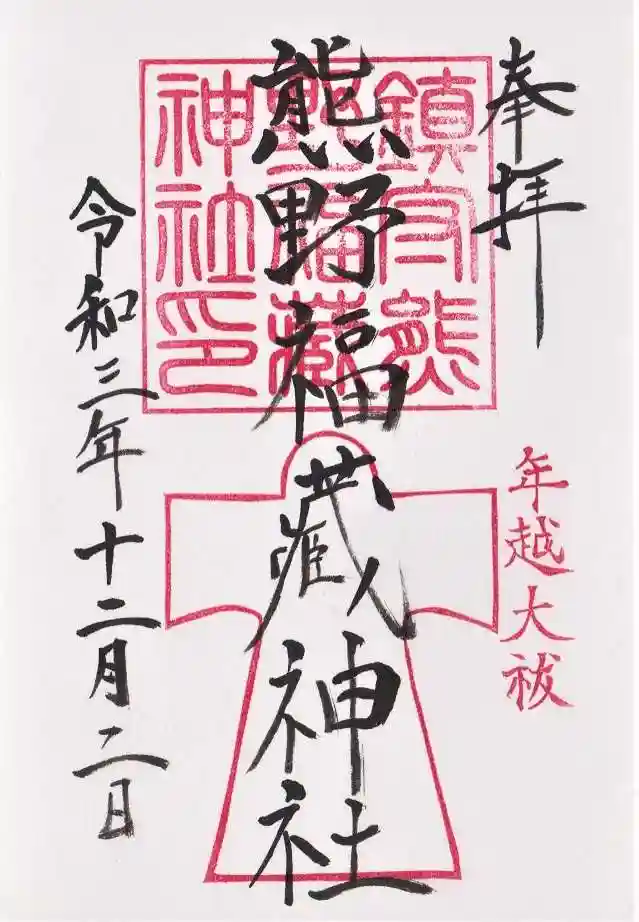 奉拝
年越大祓
鎮守熊
野福蔵
神社印
熊野福蔵神社
令和三年十二月二日